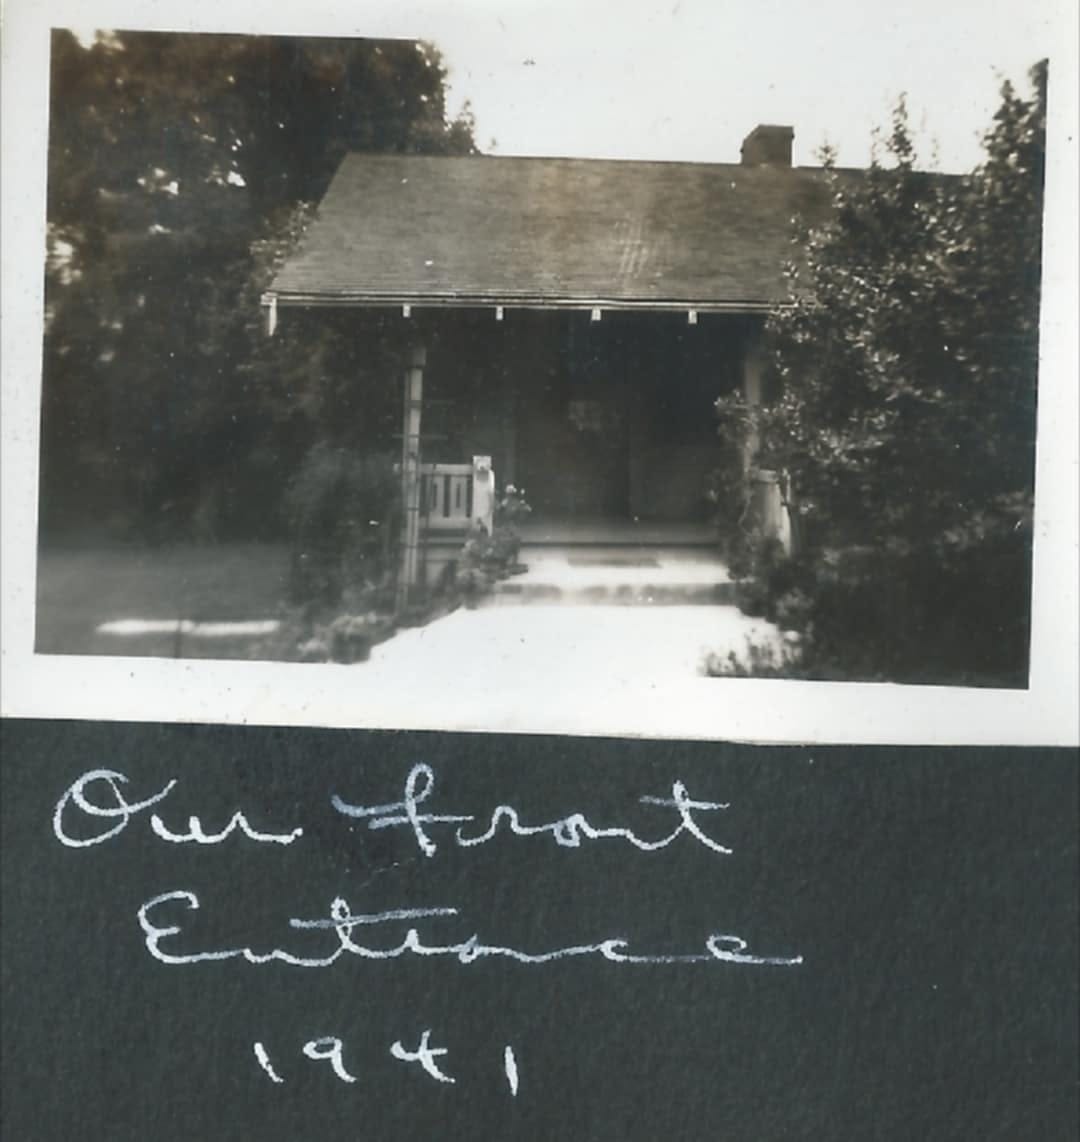 Our front
Entrance
1941